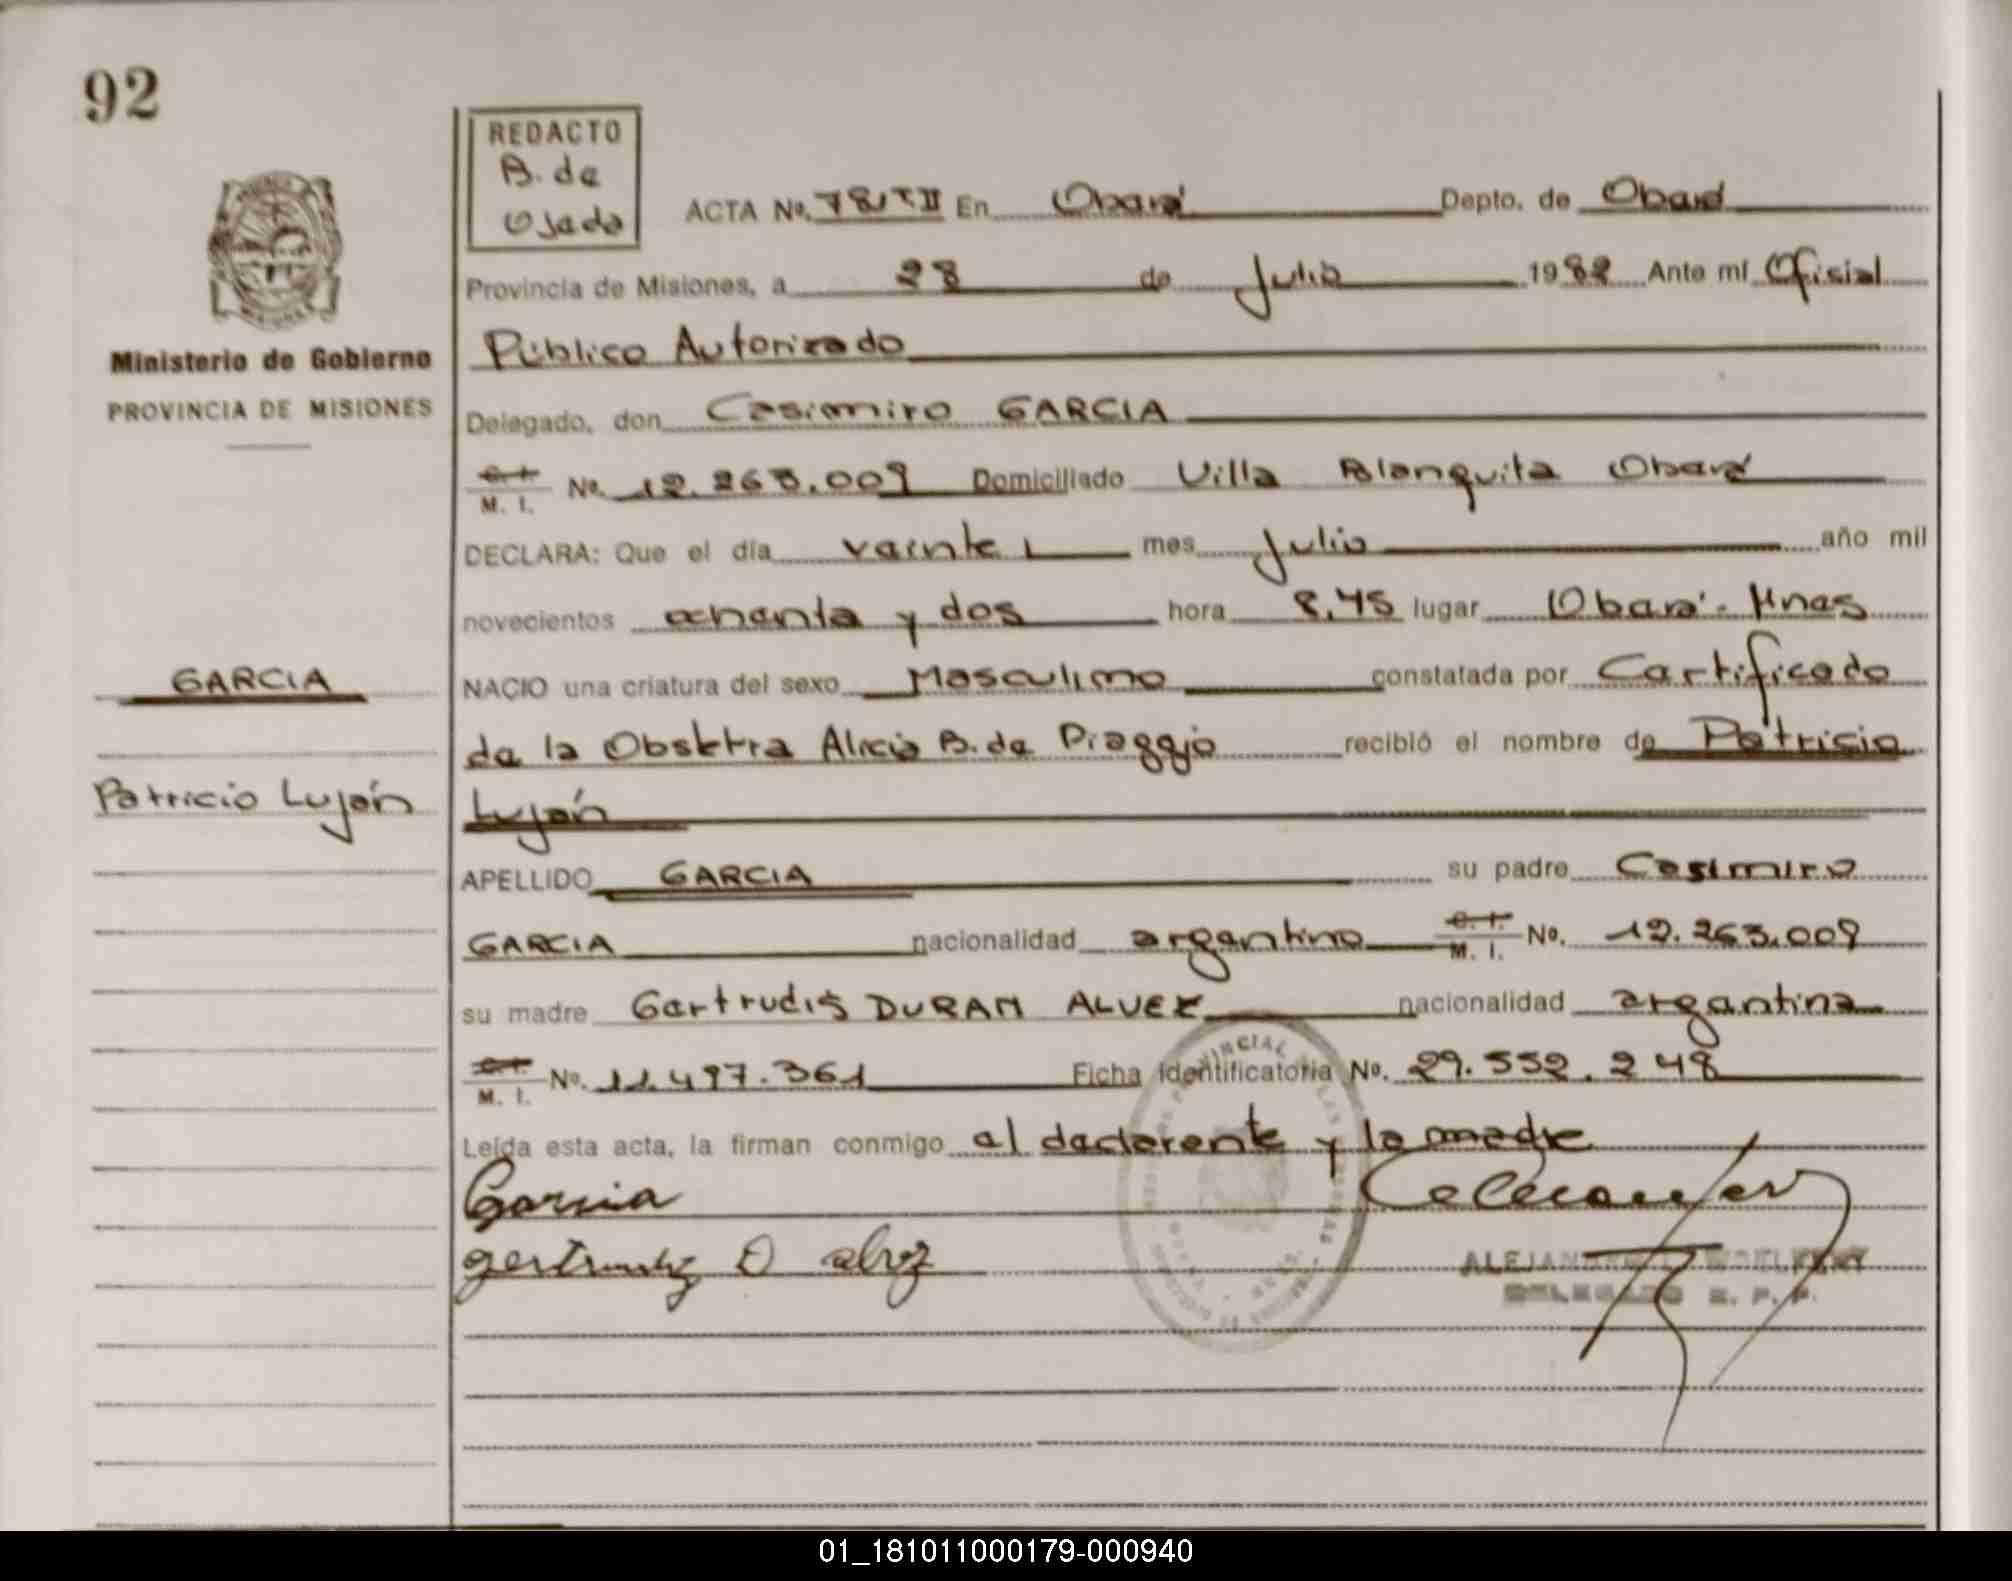 92
REDACTO
B. de
Ojeda
ACTA No. 78/TII En Oberá Depto. de Oberá
Provincia de Misiones, a 28 de Julio 1982 Ante mí Oficial
Público Autorizado
Ministerio de Gobierno
PROVINCIA DE MISIONES
Delegado, don Casimiro GARCIA
C. I. / M. I. No. 12.263.009 Domiciliado Villa Blanquita Oberá
DECLARA: Que el día veinte mes Julio año mil
novecientos ochenta y dos hora 8,45 lugar Oberá - Mnes
GARCIA
NACIO una criatura del sexo Masculino constatada por Certificado
de la Obstetra Alicia B. de Piaggio recibió el nombre de Patricio
Patricio Luján
Luján
APELLIDO GARCIA su padre Casimiro
GARCIA nacionalidad argentino C. I. / M. I. No. 12.263.009
su madre Gertrudis DURAN ALVEZ nacionalidad argentina
C. I. / M. I. No. 11.497.361 Ficha Identificatoria No. 29.552.248
Leída esta acta, la firman conmigo el declarente y la madre
Garcia
gertrudiz D alvz
DELEGADO R. P. P.
01_181011000179-000940